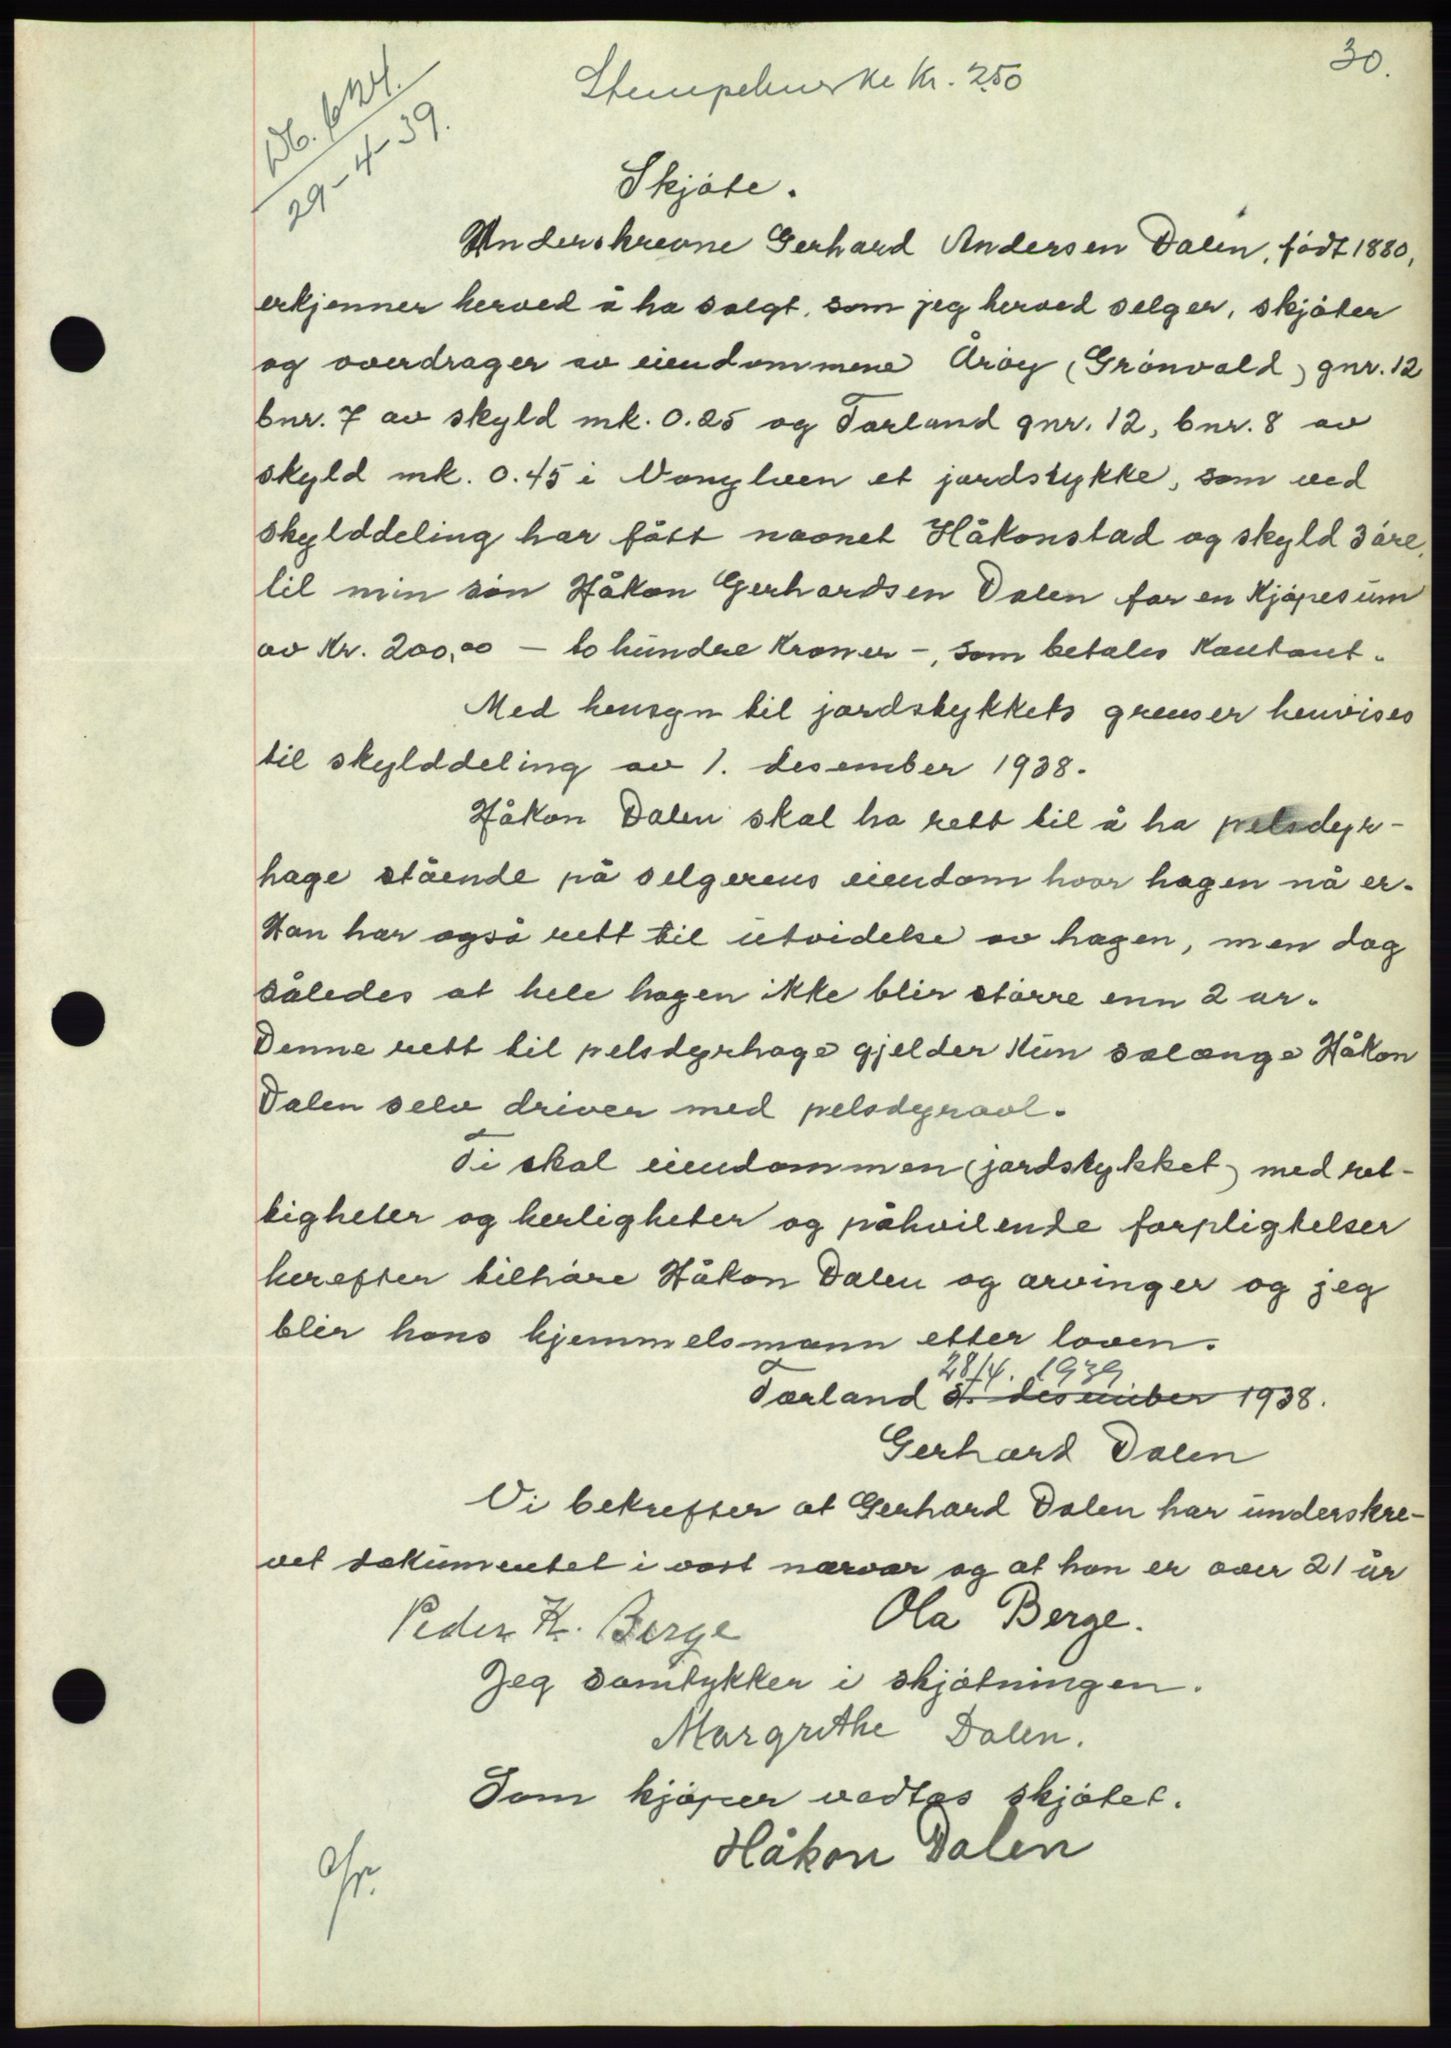 30.
Stempelmerke Kr. 2.50
Db. 624.
29-4-39.
Skjöte.
Underskrevne Gerhard Andersen Dalen, födt 1880,
erkjenner herved å ha solgt, som jeg herved selger, skjöter
og overdrager av eiendommene Åröy (Grönvold) gnr. 12
bnr. 7 av skyld mk. 0.25 og Torland gnr. 12, bnr. 8 av
skyld mk. 0.45 i Vanylven et jordstykke, som ved
skylddeling har fått navnet Håkonstad og skyld 3 öre,
til min sön Håkon Gerhardsen Dalen for en kjöpesum
av Kr. 200,00 – to hundre kroner –, som betales kontant.
Med hensyn til jordstykkets grenser henvises
til skylddeling av 1. desember 1938.
Håkon Dalen skal ha rett til å ha pelsdyr-
hage stående på selgerens eiendom hvor hagen nå er.
Han har også rett til utvidelse av hagen, men dog
således at hele hagen ikke blir större enn 2 ar.
Denne rett til pelsdyrhage gjelder kun solænge Håkon
Dalen selv driver med pelsdyravl.
Ti skal eiendommen (jordstykket) med ret-
tigheter og herligheter og påhvilende forpligtelser
herefter tilhöre Håkon Dalen og arvinger og jeg
blir hans hjemmelsmann etter loven.
28/4. 1939
Torland desember 1938.
Gerhard Dalen
Vi bekrefter at Gerhard Dalen har underskre-
vet dokumentet i vort nærvær og at han er over 21 år
Peder K. Berge Ola Berge.
Jeg samtykker i skjötningen.
Margrethe Dalen.
Som kjöper vedtas skjötet.
Håkon Dalen